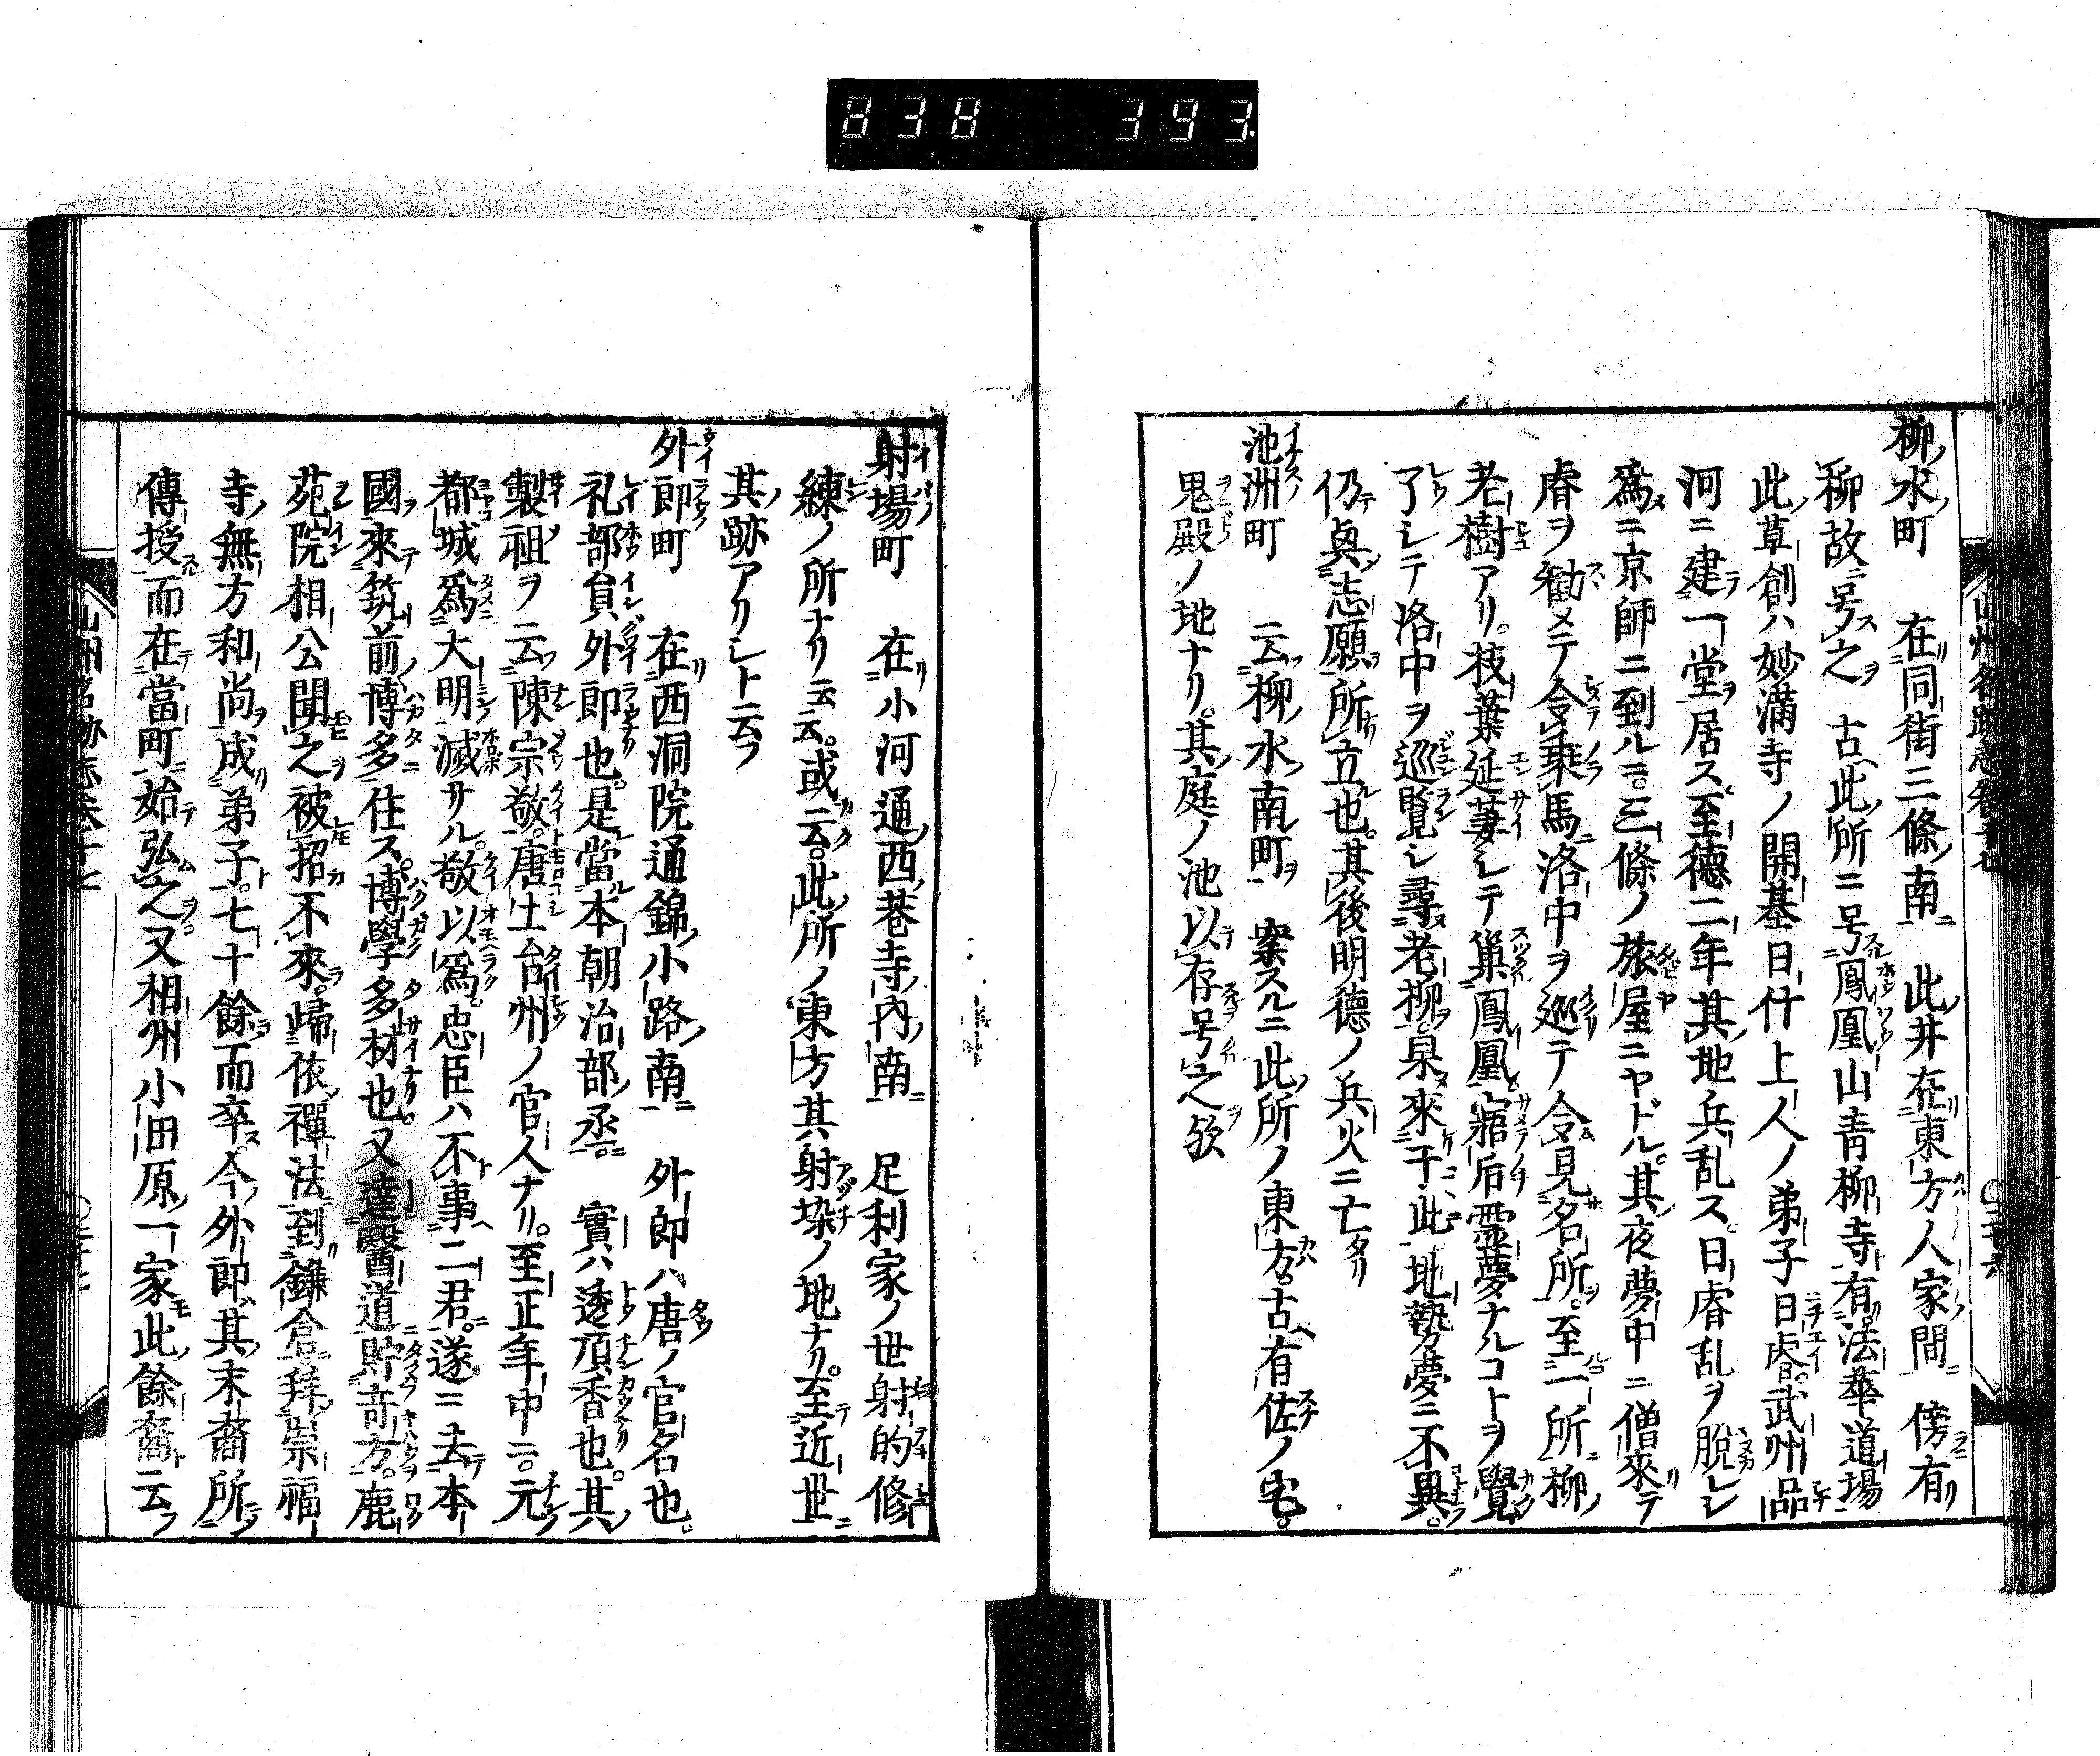 838 393
柳水町 在同街三條南 此井在東方人家間 傍有
柳故号之 古此所ニ号鳳凰山青柳寺有法華道場
此草創ハ妙滿寺ノ開基日什上人ノ弟子日睿武州品
河ニ建一堂居ス至德二年其地兵乱ス日睿乱ヲ脫レ
爲ニ京師ニ到ル三條ノ旅屋ニヤドル其夜夢中ニ僧來テ
睿ヲ勸メテ令乗馬洛中ヲ巡テ令見名所至一所柳
老樹アリ枝葉延萋シテ巢鳳凰寤后霊夢ナルコトヲ覺
了シテ洛中ヲ巡覽シ尋老柳泉來于此地勢夢ニ不異
仍與志願所立也其後明德ノ兵火ニ亡
池洲町 云柳水南町 案スルニ此所ノ東方古有佐ノ宅
鬼殿ノ地ナリ其庭ノ池以存号之欤
射場町 在小河通西巷寺内南 足利家ノ世射的修
練ノ所ナリ云云或云此所ノ東方其射垜ノ地ナリ至近世
其跡アリシト云フ
外郎町 在西洞院通錦小路南 外郎ハ唐ノ官名也
礼部員外郎也是當本朝治部丞 實ハ透頂香也其
製祖ヲ云陳宗敬唐土台州ノ官人ナリ至正年中ニ元
都城爲大明滅サル敬以爲忠臣ハ不事二君遂ニ去本
國來筑前博多住ス博學多材也又達醫道貯奇方鹿
苑院相公聞之被招不來歸依禪法到鎌倉拜崇福
寺無方和尚成弟子七十餘而卒今外郎其末裔所
傳授而在當町始弘之又相州小田原一家此餘裔云フ
山州名跡志巻十七